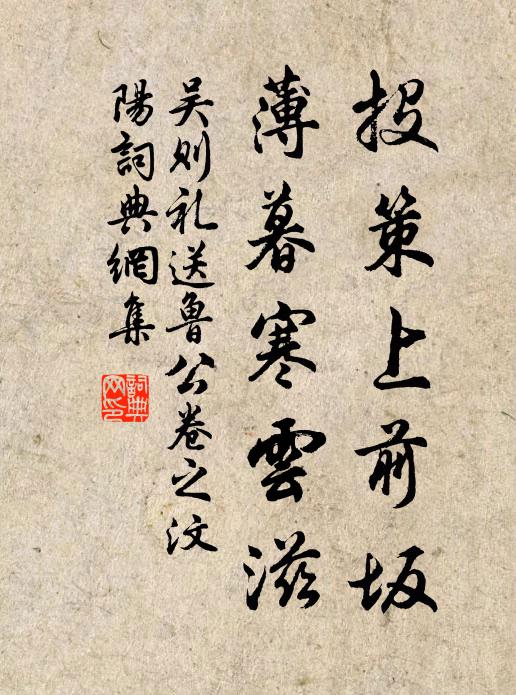 投策上前坂
薄暮寒雲滋
吴则礼送魯公卷之汶
陽詞典網集
詞典
网印